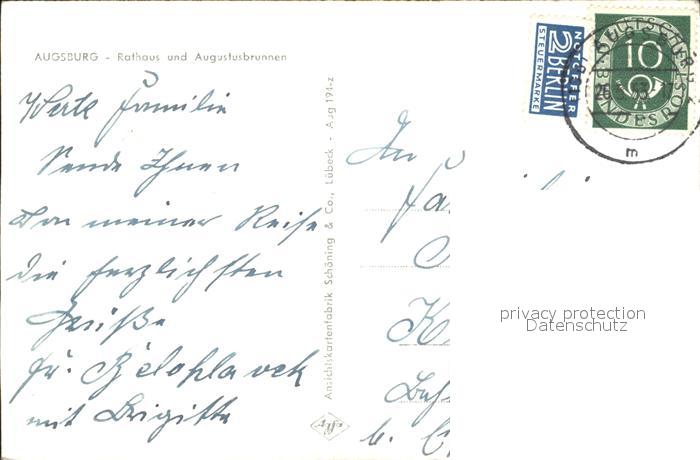 AUGSBURG - Rathaus und Augustusbrunnen
Werte Familie
Sende Ihnen
Von meiner Reise
die herzlichsten
Grüße
Fr. Belohlavek
mit Brigitte
Ansichtskartenfabrik Schöning & Co., Lübeck - Aug 194-z
An
Fa
K
b.
NOTOPFER
2 BERLIN
STEUERMARKE
DEUTSCHE
10
BUNDESPOST
m
privacy protection
Datenschutz